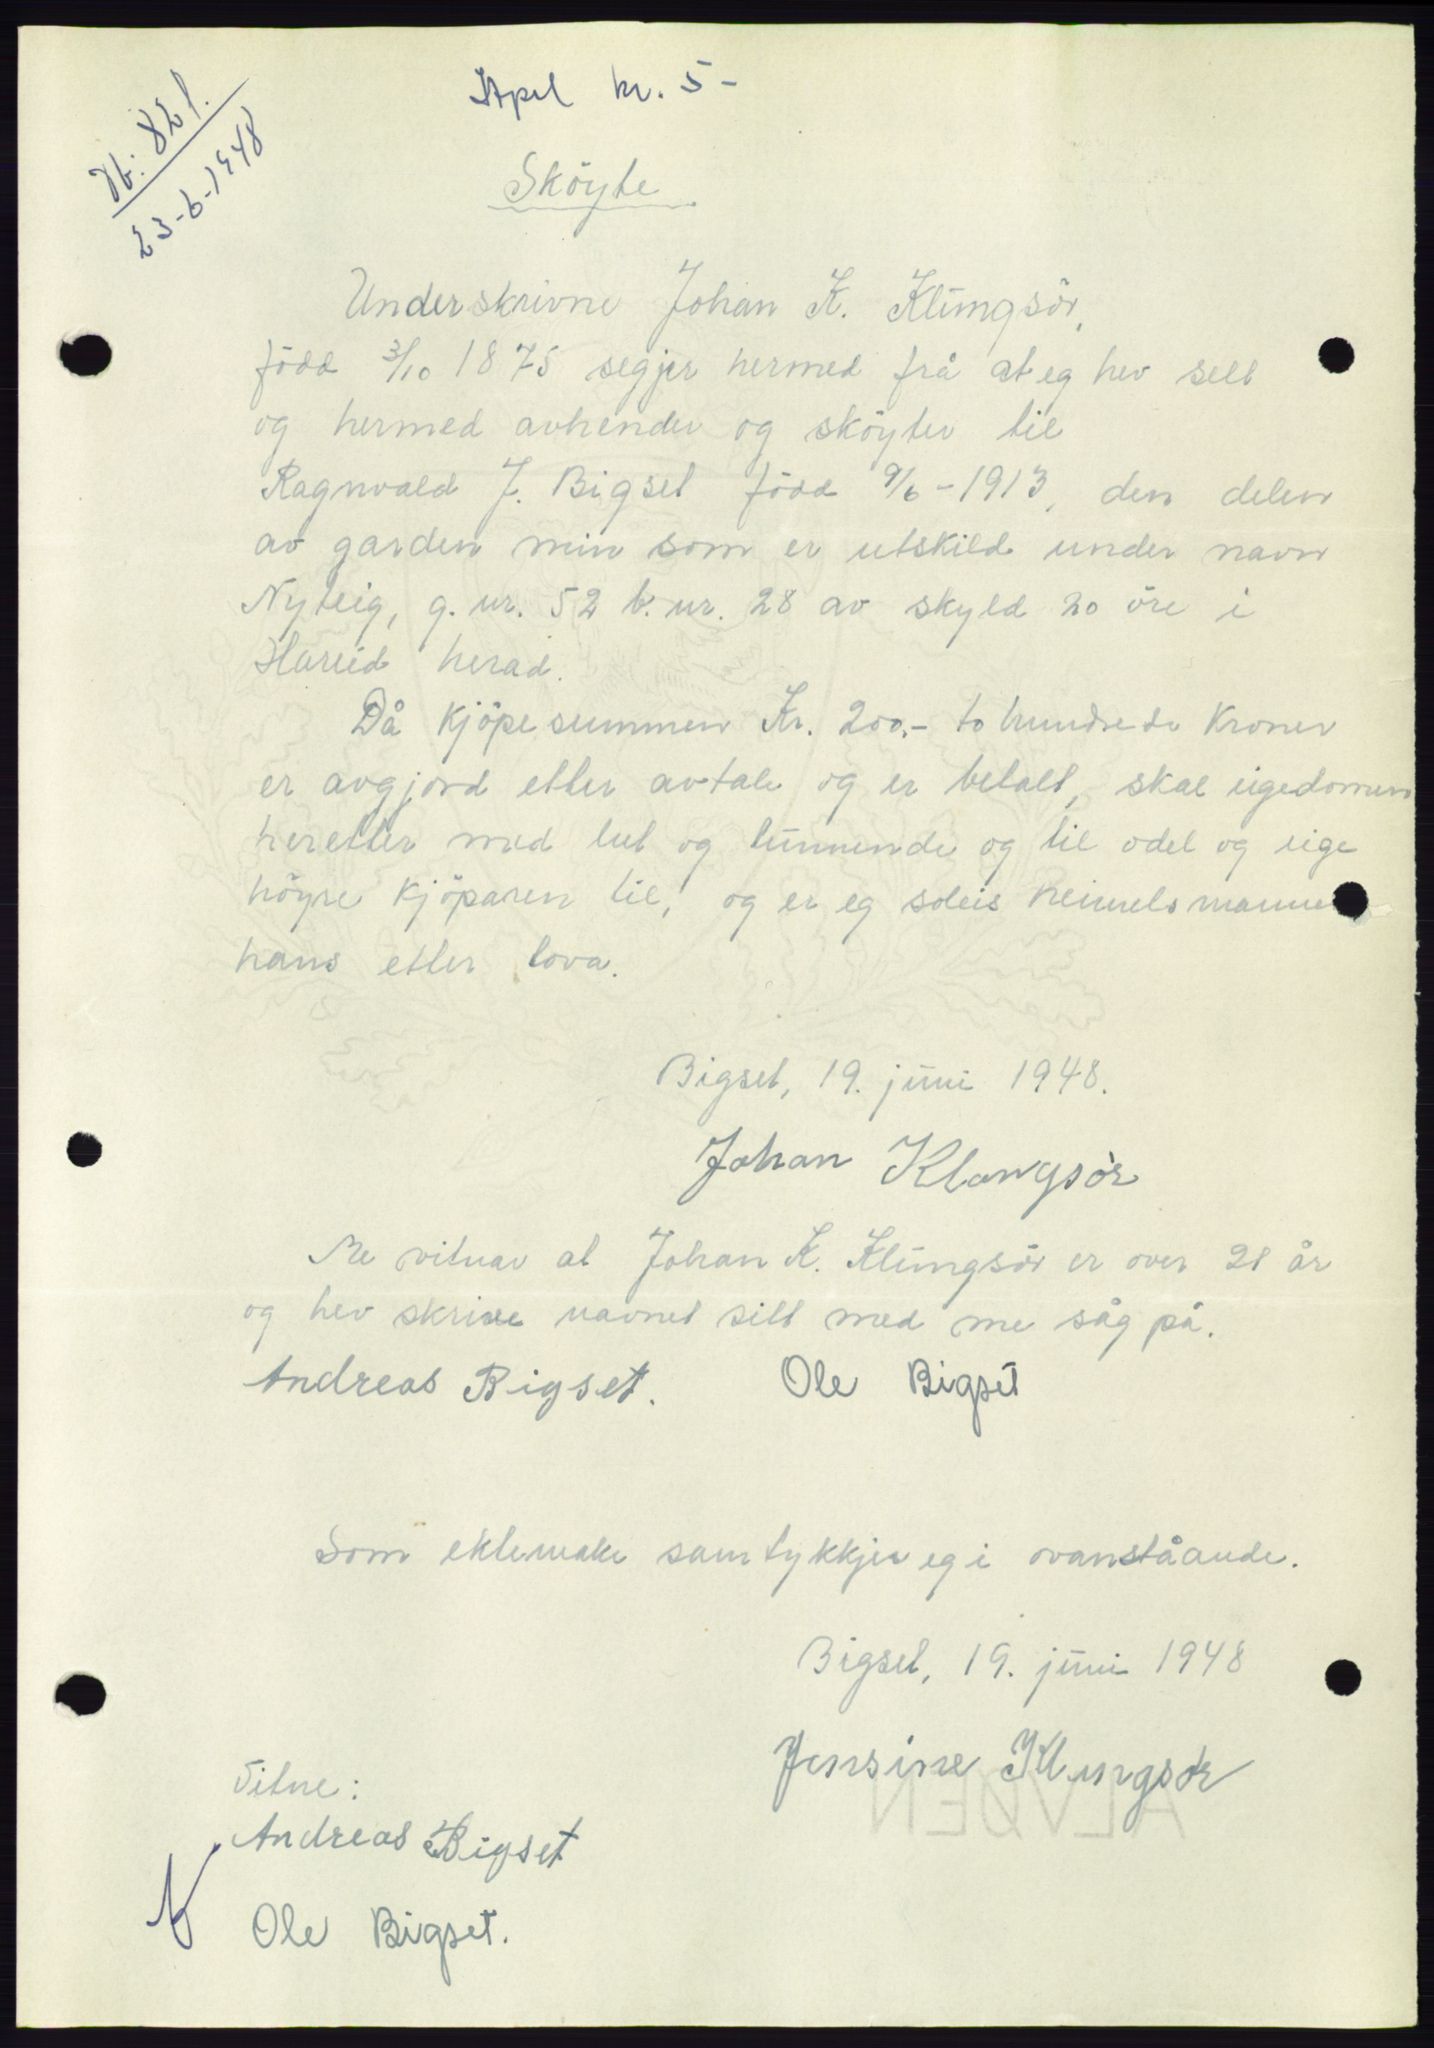 Stpl kr. 5-
Db. 821.
23-6-1948
Sköyte
Underskrivne Johan K. Klungsör,
född 3/10 1875 segjer hermed frå at eg hev selt
og hermed avhender og sköyter til
Ragnvald J. Bigset född 9/6-1913, den delen
av garden min som er utskild under navn
Nyteig, g. nr. 52 b. nr. 28 av skyld 20 öre i
Hareid herad.
Då kjöpesummen Kr. 200.- to hundrede kroner
er avgjord etter avtale og er betalt, skal eigedomen
heretter med lut og lunnende og til odel og eige
höyre kjöparen til, og er eg soleis heimelsmannen
hans etter lova.
Bigset, 19. juni 1948.
Johan Klongsör
Me vitnar at Johan K. Klungsör er over 21 år
og hev skrive navnet sitt med me såg på.
Andreas Bigset. Ole Bigset
Som ektemake samtykkjer eg i ovanståande.
Bigset, 19. juni 1948
Jensine Klungsör
Vitne:
Andreas Bigset
Ole Bigset.
ALVØEN